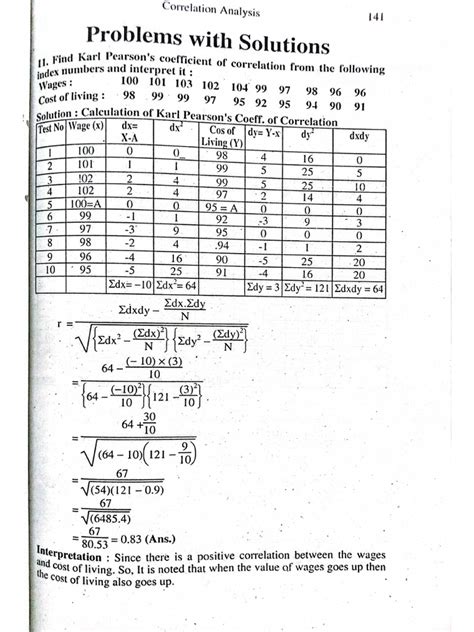 Correlation Analysis
141
Problems with Solutions
11. Find Karl Pearson's coefficient of correlation from the following
index numbers and interpret it :
Wages : 100 101 103 102 104 99 97 98 96 96
Cost of living : 98 99 99 97 95 92 95 94 90 91
Solution : Calculation of Karl Pearson's Coeff. of Correlation
Test No Wage (x) dx= X-A dx² Cos of Living (Y) dy= Y-x dy² dxdy
1 100 0 0 98 4 16 0
2 101 1 1 99 5 25 5
3 102 2 4 99 5 25 10
4 102 2 4 97 2 14 4
5 100=A 0 0 95 = A 0 0 0
6 99 -1 1 92 -3 9 3
7 97 -3 9 95 0 0 0
8 98 -2 4 .94 -1 1 2
9 96 -4 16 90 -5 25 20
10 95 -5 25 91 -4 16 20
Σdx= −10 Σdx²= 64 Σdy = 3 Σdy² = 121 Σdxdy = 64
r = (Σdxdy − Σdx.Σdy / N) / √{Σdx² − (Σdx)² / N} {Σdy² − (Σdy)² / N}
= (64 − (− 10) × (3) / 10) / {64 − (−10)² / 10} {121 − (3)² / 10}
= (64 + 30 / 10) / √(64 − 10) (121 − 9 / 10)
= 67 / √(54)(121 − 0.9)
= 67 / √(6485.4)
= 67 / 80.53 = 0.83 (Ans.)
Interpretation : Since there is a positive correlation between the wages
and cost of living. So, It is noted that when the value of wages goes up then
the cost of living also goes up.